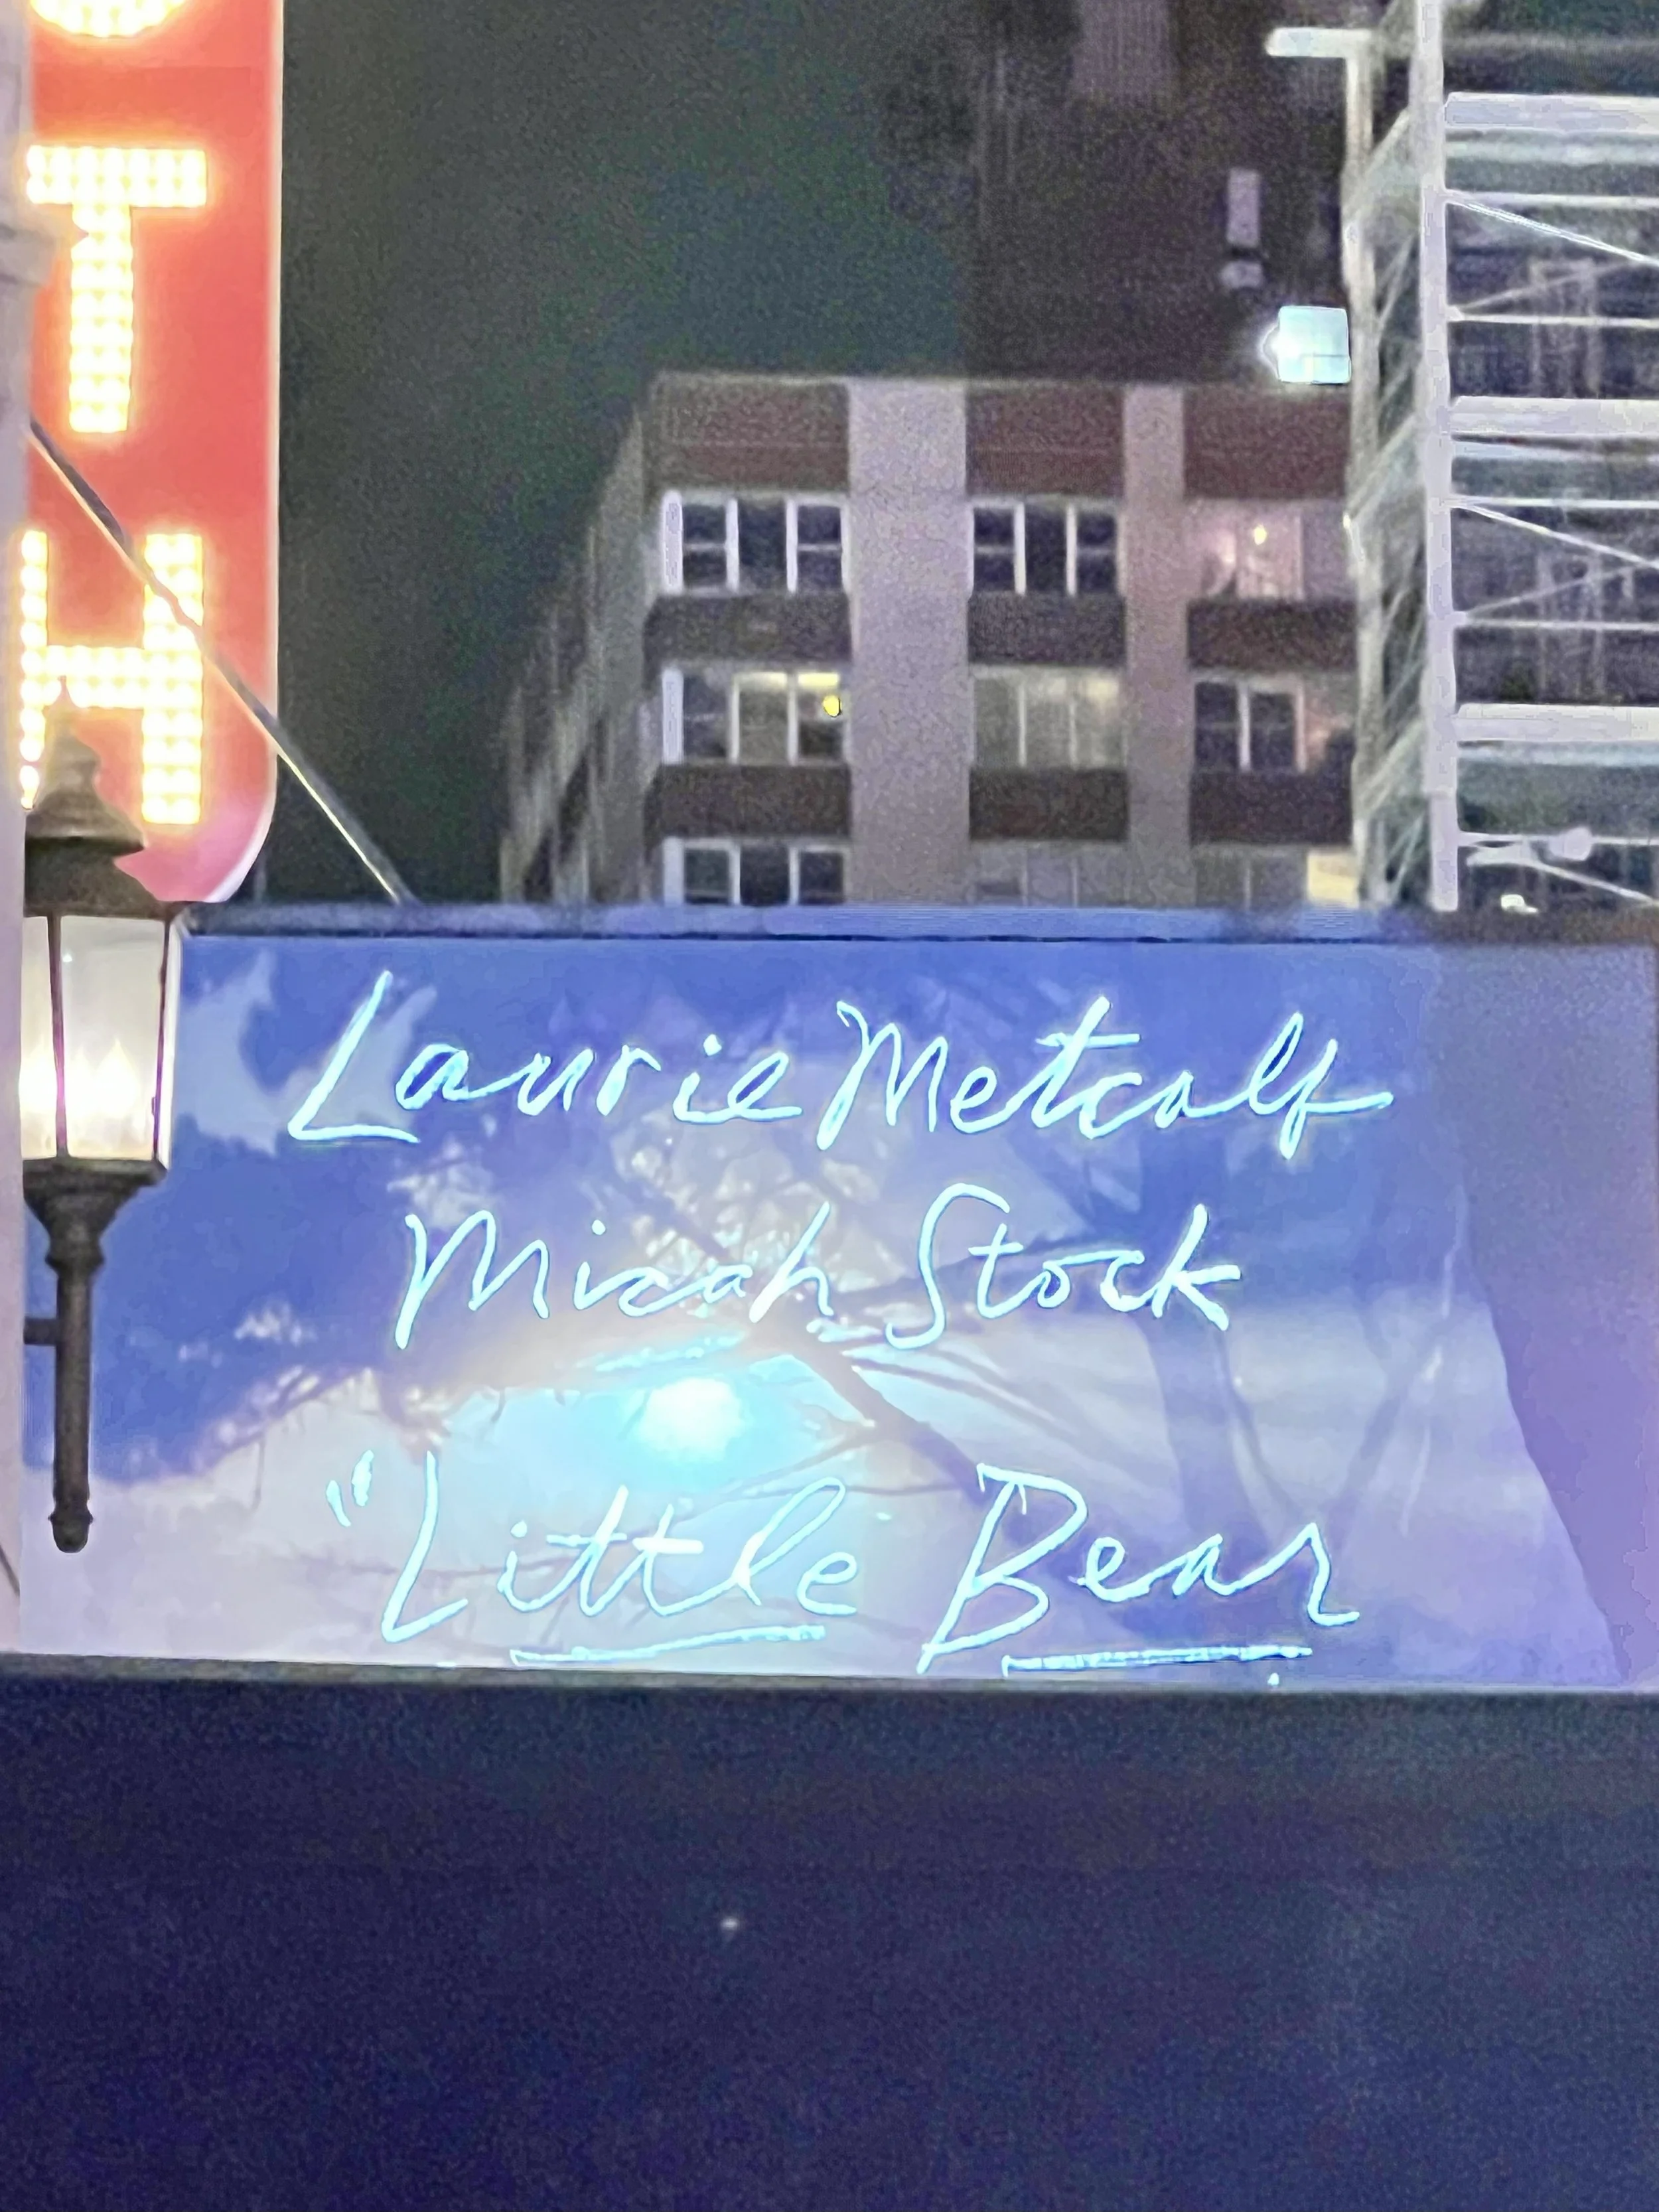 T
H
Laurie Metcalf
Micah Stock
"Little Bear